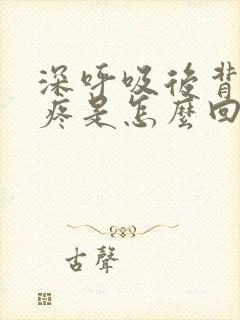 深呼吸後背
疼是怎麼回
古聲